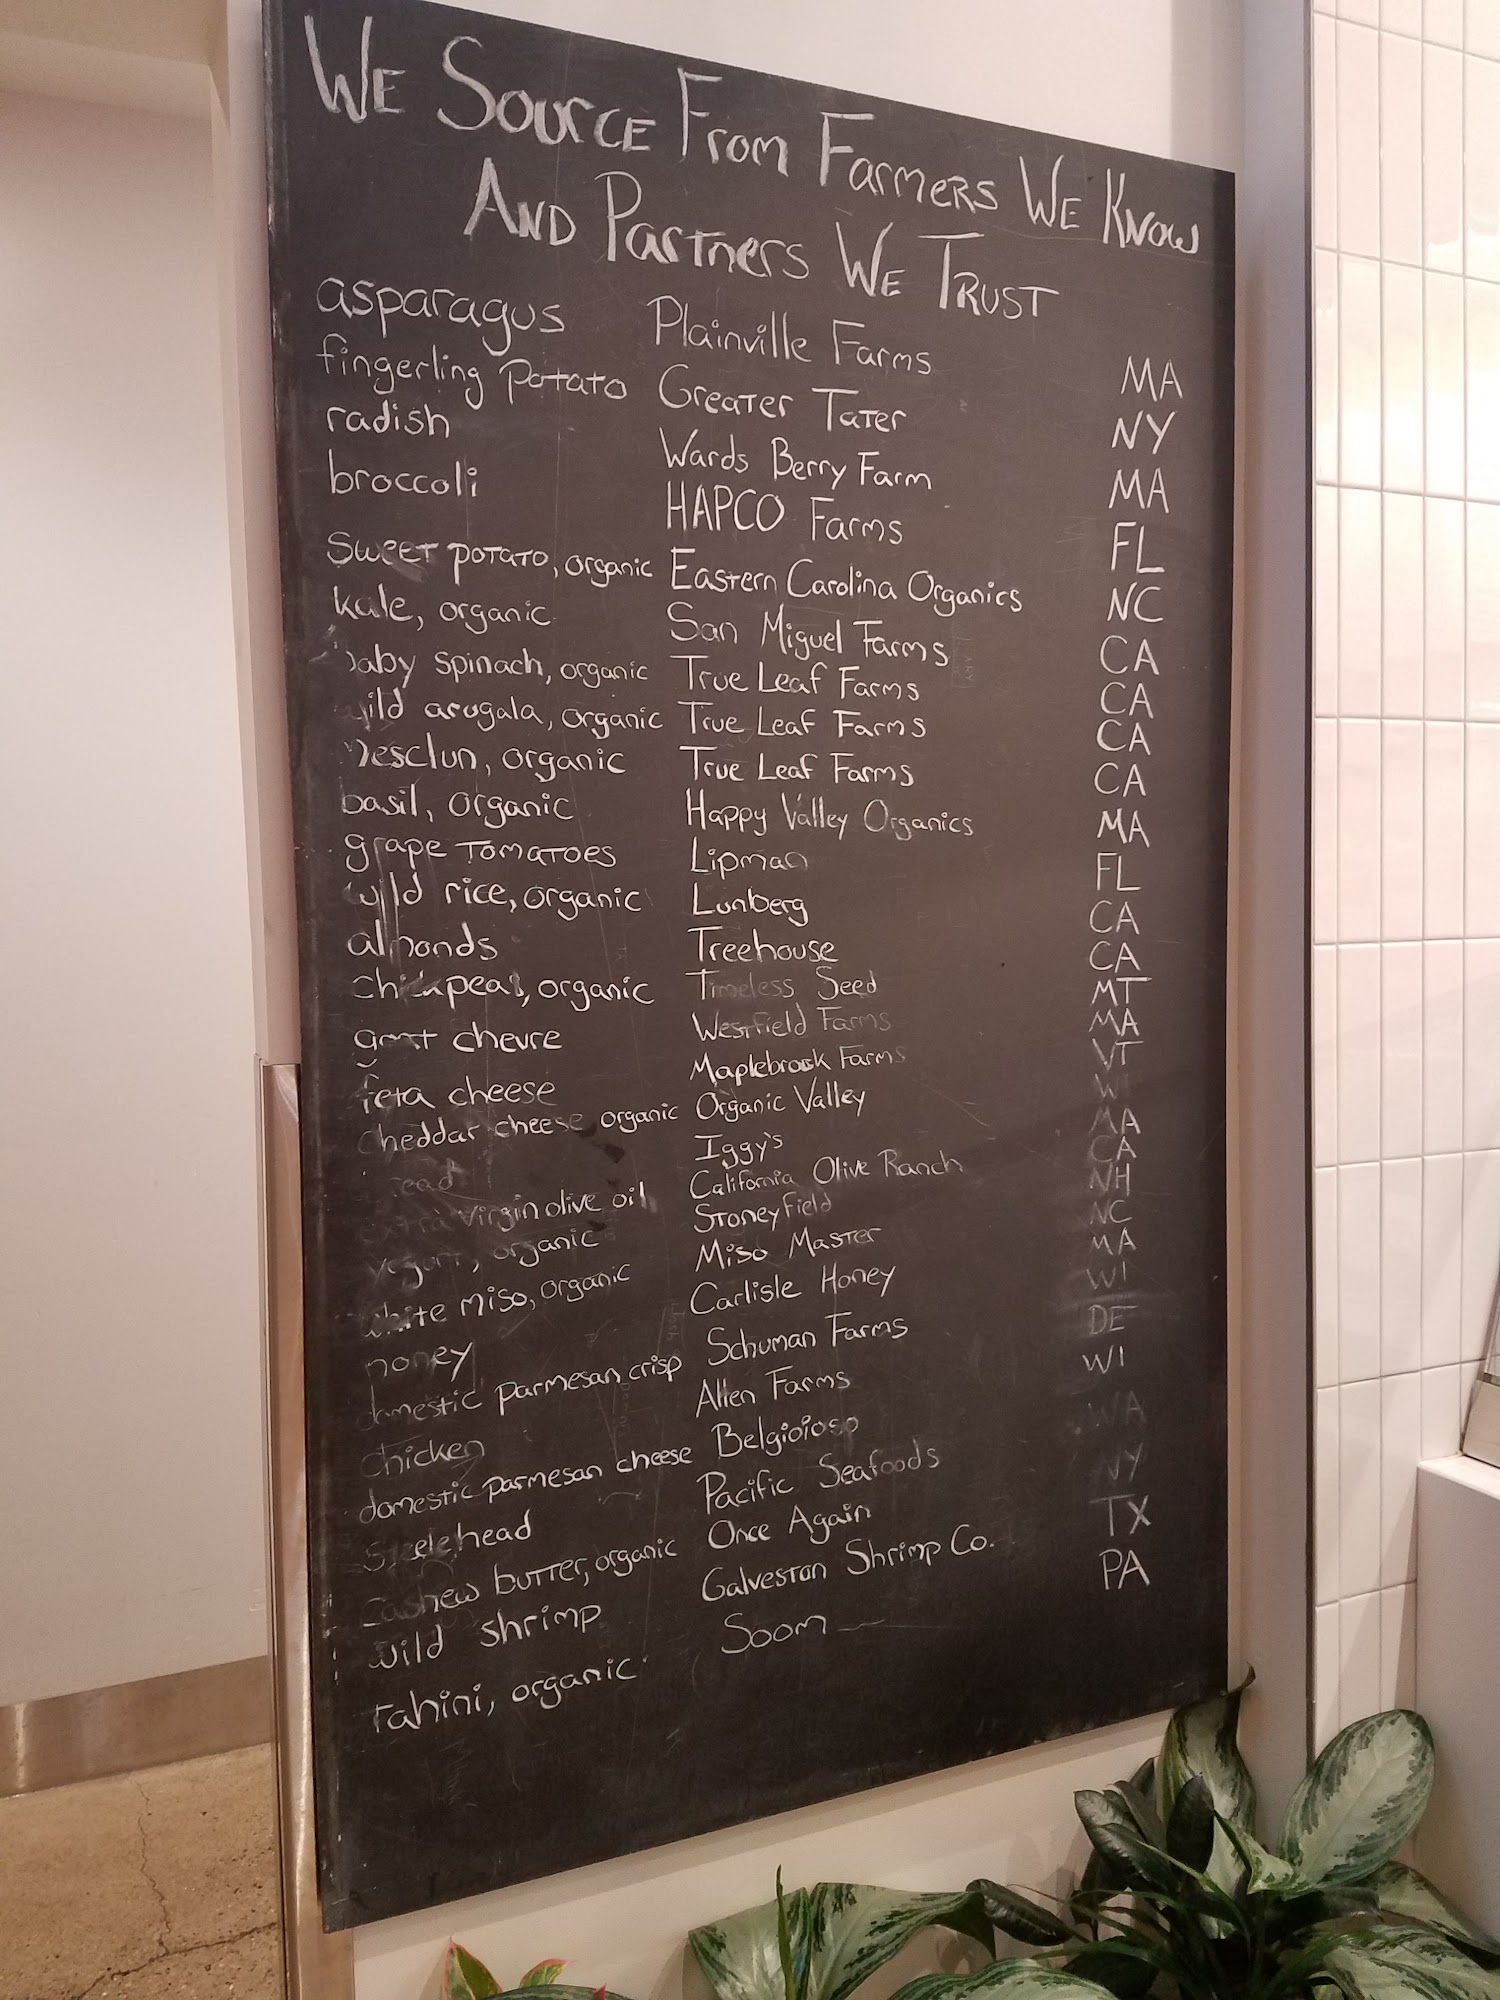 WE SOURCE FROM FARMERS WE KNOW
AND PARTNERS WE TRUST
asparagus Plainville Farms MA
fingerling potato Greater Tater NY
radish Wards Berry Farm MA
broccoli HAPCO Farms FL
sweet potato, organic Eastern Carolina Organics NC
kale, organic San Miguel Farms CA
baby spinach, organic True Leaf Farms CA
wild arugala, organic True Leaf Farms CA
mesclun, organic True Leaf Farms CA
basil, organic Happy Valley Organics MA
grape tomatoes Lipman FL
wild rice, organic Lunberg CA
almonds Treehouse CA
chickpeas, organic Timeless Seed MT
goat chevre Westfield Farms MA
feta cheese Maplebrook Farms VT
cheddar cheese organic Organic Valley WI
bread Iggy's MA
extra virgin olive oil California Olive Ranch CA
yogurt, organic Stoneyfield NH
white miso, organic Miso Master NC
honey Carlisle Honey MA
domestic parmesan crisp Schuman Farms WI
chicken Allen Farms DE
domestic parmesan cheese Belgioioso WI
steelehead Pacific Seafoods WA
cashew butter, organic Once Again NY
wild shrimp Galveston Shrimp Co. TX
tahini, organic Soom PA